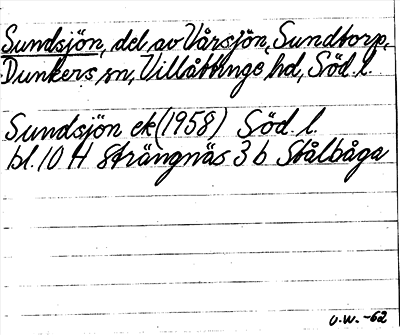 Sundsjön, del av Vårsjön, Sundtorp,
Dunkers sn, Villåttinge hd, Söd. l.
Sundsjön ek (1958) Söd. l.
bl. 10 H Strängnäs 3 b Stålbåga
U.W. -62